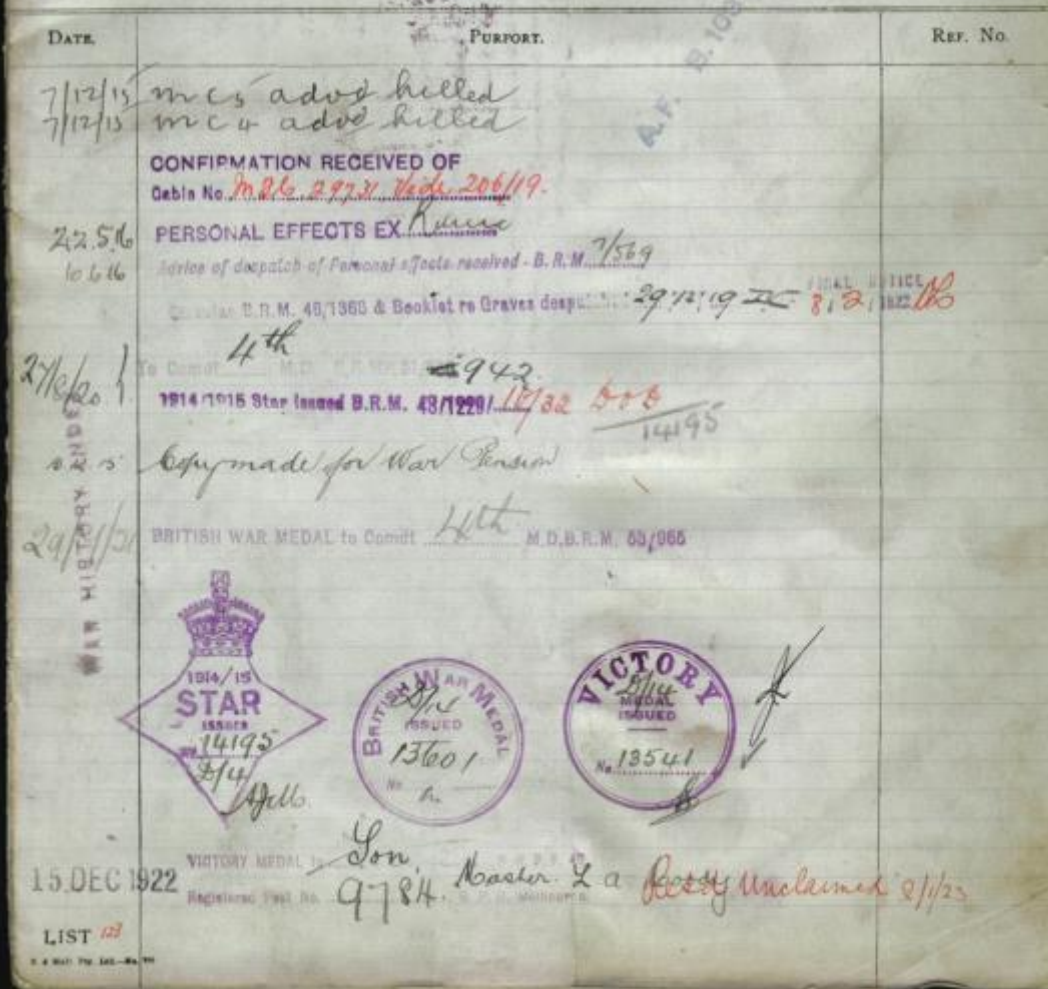 DATE. PURPORT. REF. No.
A.F. B. 103
7/12/15 mc5 advd killed
7/12/15 mc4 advd killed
CONFIRMATION RECEIVED OF
Cable No. 29731 Vide 206/19.
22.5.16 PERSONAL EFFECTS EX
10 6 16 Advice of despatch of Personal effects received - B.R.M. 7/569
Circular B.R.M. 46/1363 & Booklet re Graves 29.12.19 NOTICE 8.2.1922
27/8/20 To Comdt 4th M.D. 942
1914/1915 Star Issued B.R.M. 43/1229/ 15/32 14195
Copy made for War Pension
BRITISH WAR MEDAL to Comdt 4th M.D.B.R.M. 53/965
WAR HISTORY INDEX
1914/15
STAR
ISSUED
14195
D/14
BRITISH WAR MEDAL
D/14
ISSUED
13601
No
VICTORY
D/14
MEDAL
ISSUED
No 13541
15 DEC 1922 VICTORY MEDAL to Son,
Registered Post No. 9784. Master L a Retd Unclaimed 2/1/23
LIST 123